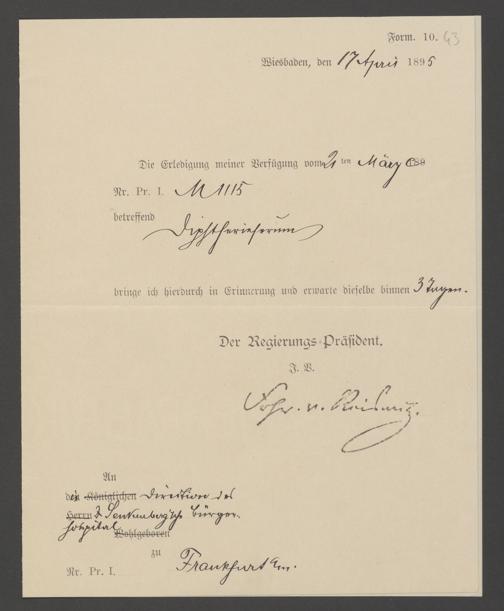 Form. 10. 63
Wiesbaden, den 17 April 1895
Die Erledigung meiner Verfügung vom 21 ten März 189
Nr. Pr. I. M 1115
betreffend
Diphtherieserum
bringe ich hierdurch in Erinnerung und erwarte dieselbe binnen 3 Tagen.
Der Regierungs-Präsident.
J. V.
Frhr. v. Reiswitz.
An
die Königlichen Direktion des
Herrn Senkenberg'sch Bürger-
hospital Wohlgeboren
zu
Frankfurt a/m.
Nr. Pr. I.